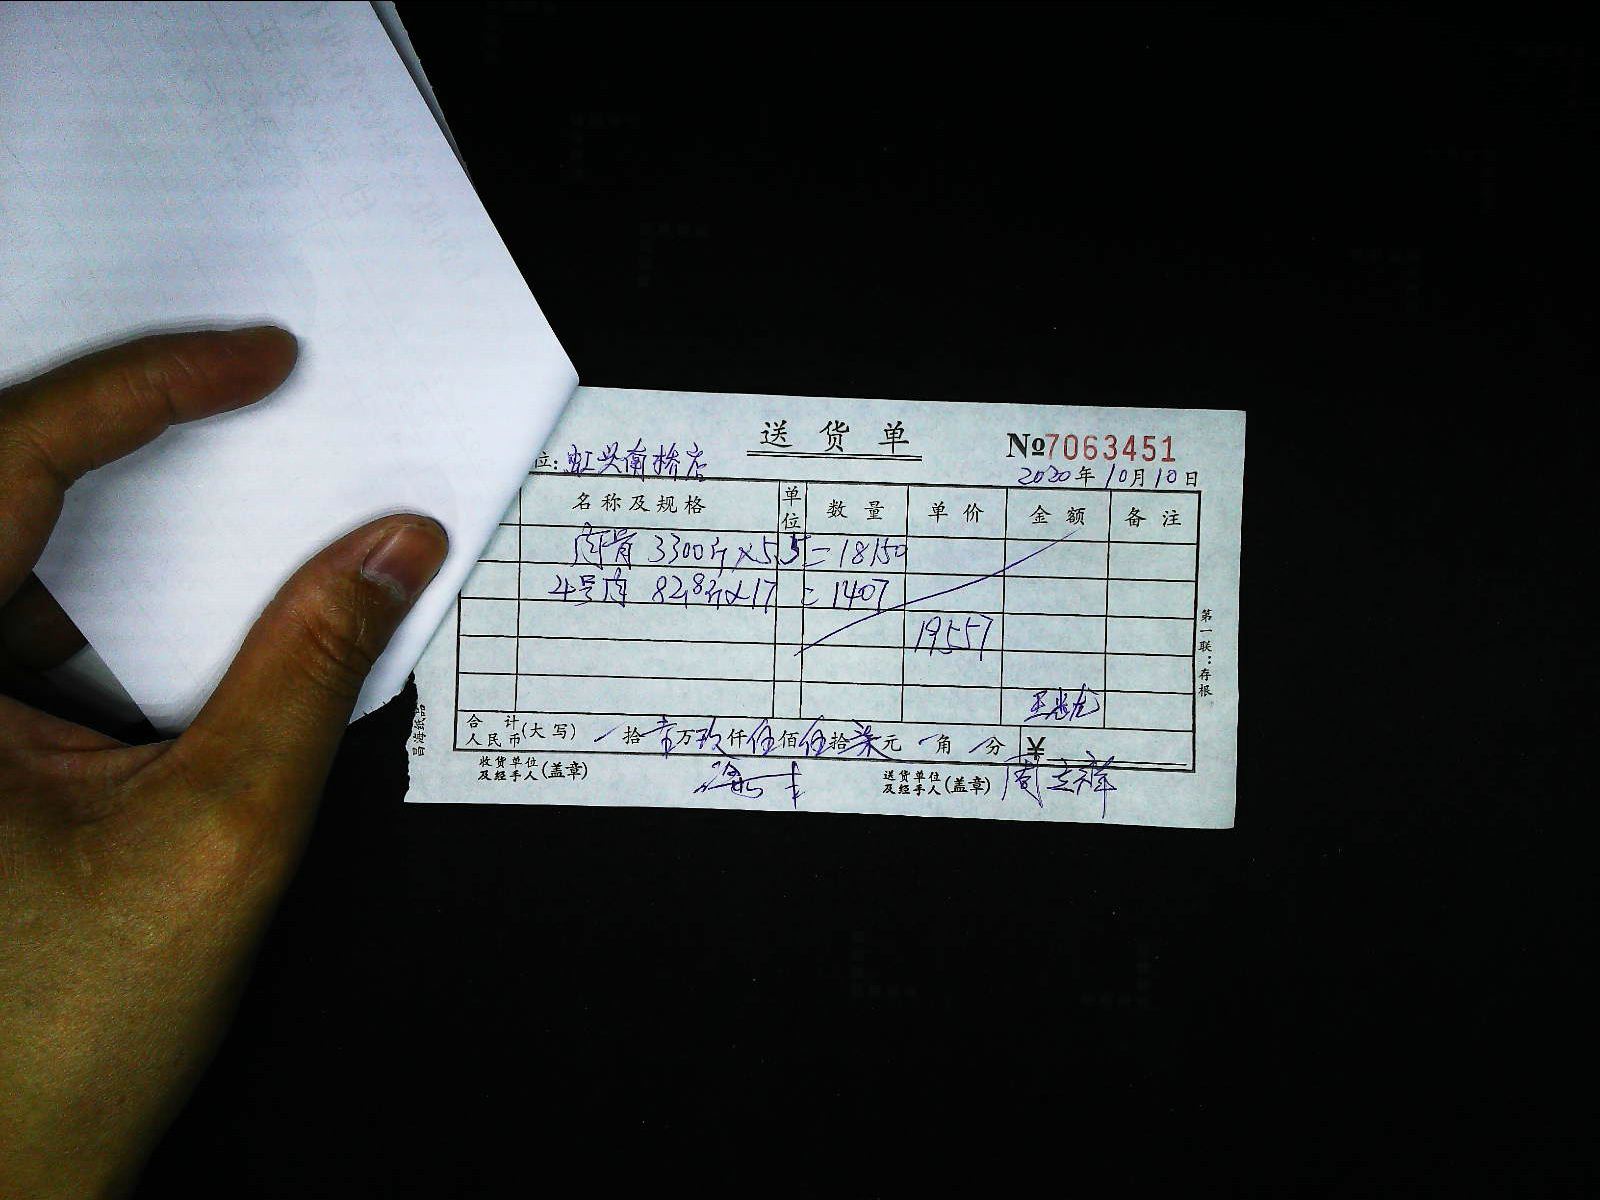 送货单 №7063451
位: 虹兴南桥店 2020年10月10日
名称及规格 单位 数量 单价 金额 备注
肉骨 3300斤×5.5=18150
4号肉 82.8斤×17=1407
19557
合计人民币(大写) 拾壹万玖仟伍佰伍拾柒元 角 分 ¥
收货单位及经手人(盖章) 送货单位及经手人(盖章) 周立祥
第一联:存根